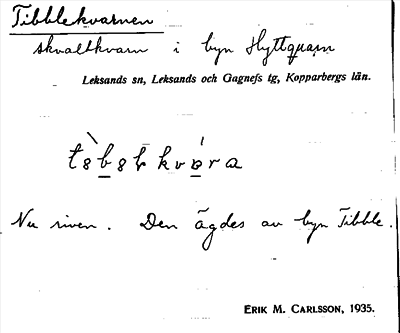 Tibblekvarnen
skvaltkvarn i byn Hyttkvarn
Leksands sn, Leksands och Gagnefs tg, Kopparbergs län.
Nu riven. Den ägdes av byn Tibble.
ERIK M. CARLSSON, 1935.